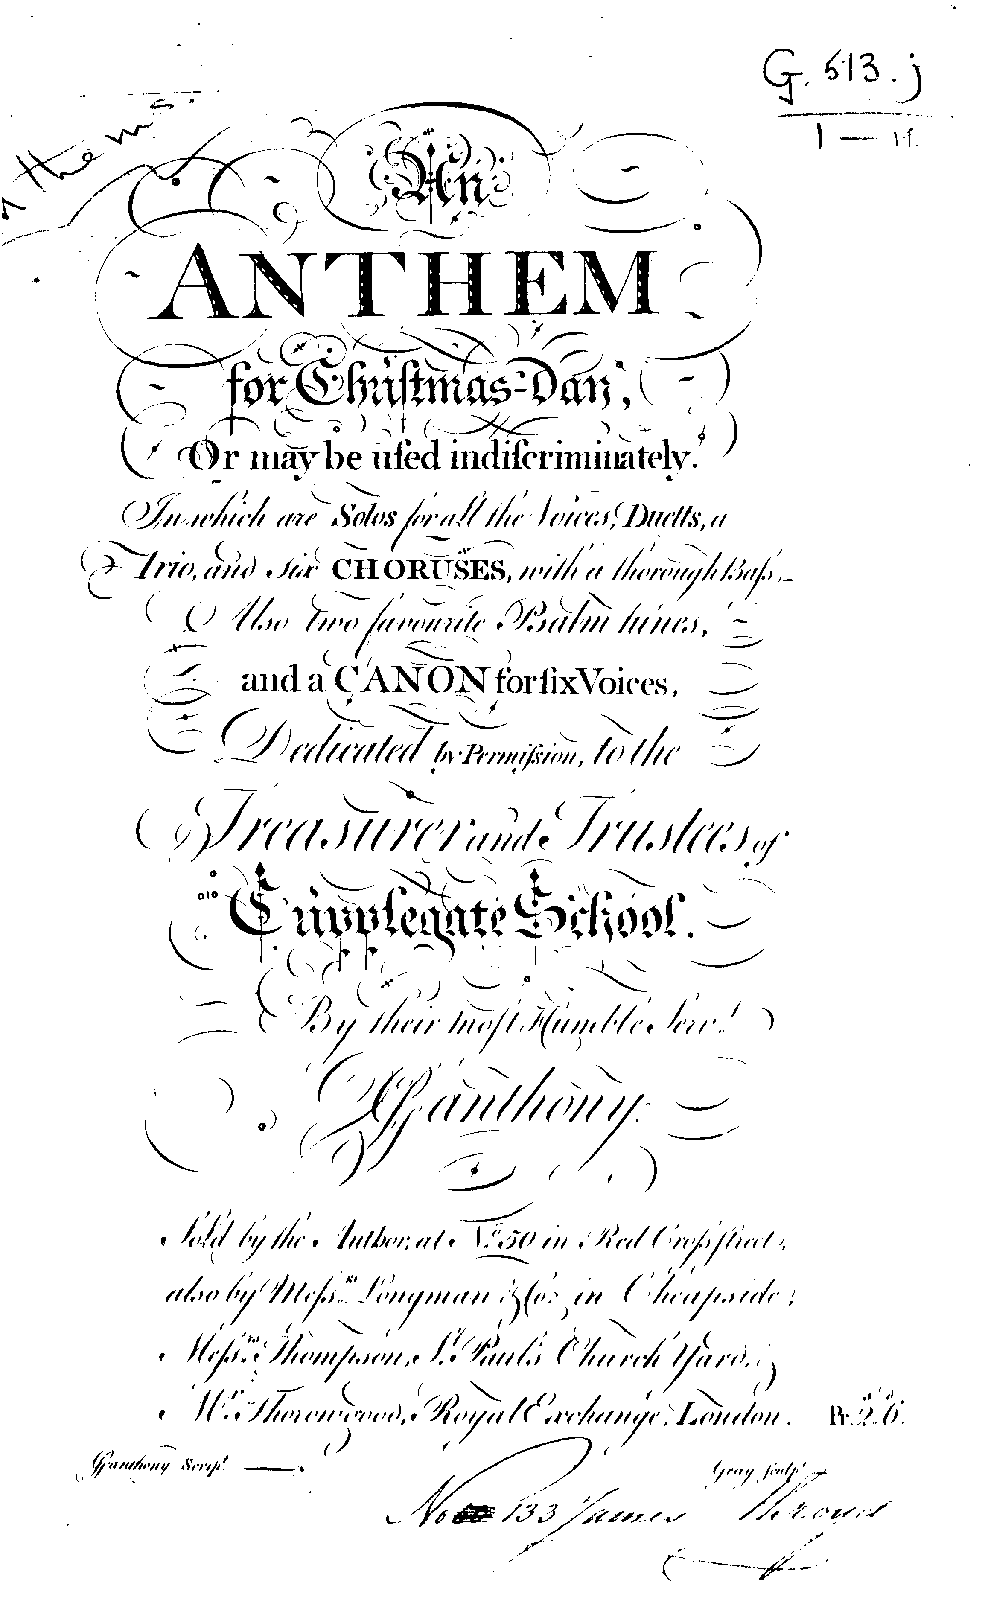 G. 513. j
1 —
An
ANTHEM
for Chriſtmas-Day,
Or may be uſed indiſcriminately.
In which are Solos for all the Voices, Duetts, a
Trio, and Six CHORUSES, with a thorough Baſs,
Also two favourite Psalm tunes,
and a CANON for ſix Voices,
Dedicated by Permiſsion, to the
Treasurer and Trustees of
Cripplegate School.
By their moſt Humble Servt
anthony.
Sold by the Author, at No. 50 in Red Croſs ſtreet;
also by Meſsrs Longman & Co: in Cheapside;
Meſsrs Thompson, St Paul's Church Yard;
Mr. Thorowgood, Royal Exchange, London. Pr. 2s. 6d.
anthony Script. Gray ſculpt
No 133 James